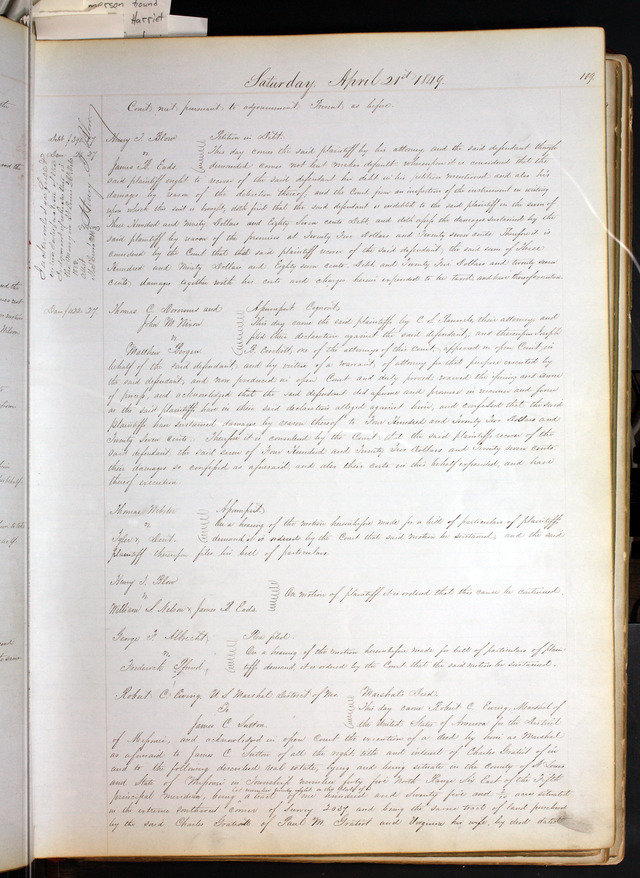 merson found
Harriet
Saturday, April 21st 1849.
119
Court met pursuant to adjournment. Present as before.
Henry T. Blow
vs
James B. Eads
Petition in Debt.
This day came the said plaintiff by his attorney, and the said defendant though
demanded comes not but makes default; wherefore it is considered that the
said plaintiff ought to recover of the said defendant his debt in his petition mentioned and also his
damages by reason of the detention thereof, and the Court, from an inspection of the instrument in writing
upon which this suit is brought, doth find that the said defendant is indebted to the said plaintiff in the sum of
Three Hundred and Ninety Dollars and Eighty Seven cents Debt, and doth assess the damages sustained by the
said plaintiff by reason of the premises at Twenty Two Dollars and Twenty seven cents. Therefore it is
considered by the Court that the said plaintiff recover of the said defendant, the said sum of Three
Hundred and Ninety Dollars and Eighty seven cents, Debt and Twenty Two Dollars and twenty seven
cents, damages together with his costs and charges herein expended to be taxed, and have thereof execution.
Debt $390.87
Dam $422.27
Thomas C. Doremus and
John M. Nixon
vs
Matthew Bergen
Assumpsit. Cognovit,
This day came the said plaintiffs by their attorney, and
filed their declaration against the said defendant; and thereupon Joseph
B. Crockett, one of the attorneys of this Court, appeared in open Court, in
behalf of the said defendant, and by virtue of a warrant of attorney for that purpose executed by
the said defendant, and now produced in open Court and duly proved, waived the issuing and service
of process, and acknowledged that the said defendant did assume and promise in manner and form
as the said plaintiffs have in their said declaration alleged against him, and confessed that the said
plaintiffs have sustained damages by reason thereof to Four Hundred and Twenty Two Dollars and
Twenty Seven cents. Therefore it is considered by the Court that the said plaintiffs recover of the
said defendant the said sum of Four Hundred and Twenty Two Dollars and Twenty seven cents
their damages so confessed as aforesaid and also their costs in this behalf expended, and have
thereof execution.
Thomas Webster
vs
Assumpsit,
On a hearing of the motion heretofore made for a bill of particulars of plaintiffs
demand, it is ordered by the Court that said motion be sustained, and the said
plaintiff thereupon files his bill of particulars.
Henry T. Blow
vs
William S. Nelson & James B. Eads.
On motion of plaintiff it is ordered that this cause be continued.
George F. Albrecht,
vs
Frederick
On a hearing of the motion heretofore made for bill of particulars of plain-
tiffs demand, it is ordered by the Court that the said motion be sustained.
Robert C. Ewing, U. S. Marshal, District of Mo
To
James C. Sutton.
Marshal's Deed.
This day came Robert C. Ewing, Marshal of
the United States of America in the District
of Missouri, and acknowledged in open Court the execution of a deed by him as Marshal
as aforesaid to James C. Sutton of all the right title and interest of Charles Gratiot of in
and to the following described real estate, lying and being situate in the county of St Louis
and State of Missouri in Township number forty five North Range Six East of the Fifth
principal meridian, being a tract of one hundred and seventy five and acres situated
in the extreme southwest corner of Survey 2037, and being the same tract of land purchased
by the said Charles Gratiot of Paul M. Gratiot and Virginia his wife, by deed dated